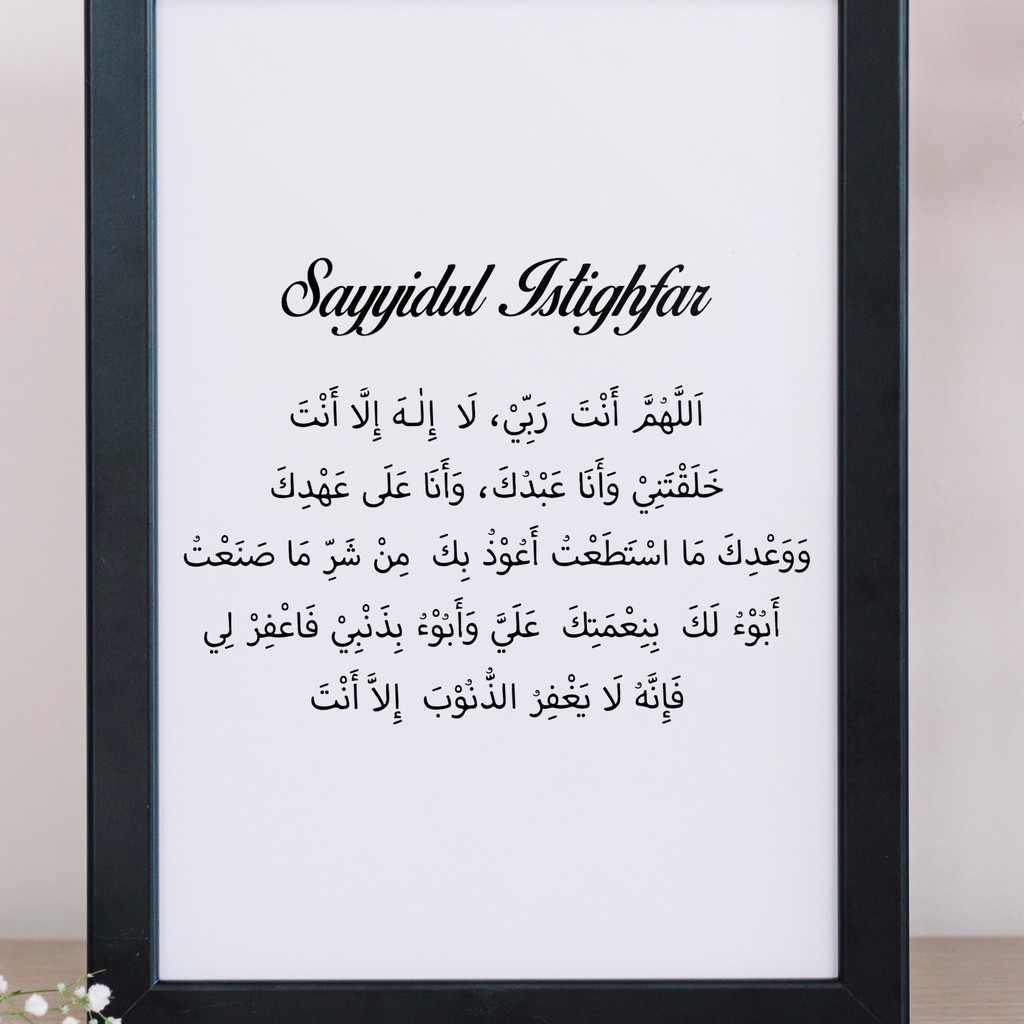 Sayyidul Istighfar
اَللَّهُمَّ أَنْتَ رَبِّيْ، لَا إِلٰـهَ إِلَّا أَنْتَ
خَلَقْتَنِيْ وَأَنَا عَبْدُكَ، وَأَنَا عَلَى عَهْدِكَ
وَوَعْدِكَ مَا اسْتَطَعْتُ أَعُوْذُ بِكَ مِنْ شَرِّ مَا صَنَعْتُ
أَبُوْءُ لَكَ بِنِعْمَتِكَ عَلَيَّ وَأَبُوْءُ بِذَنْبِيْ فَاغْفِرْ لِي
فَإِنَّهُ لَا يَغْفِرُ الذُّنُوْبَ إِلاَّ أَنْتَ